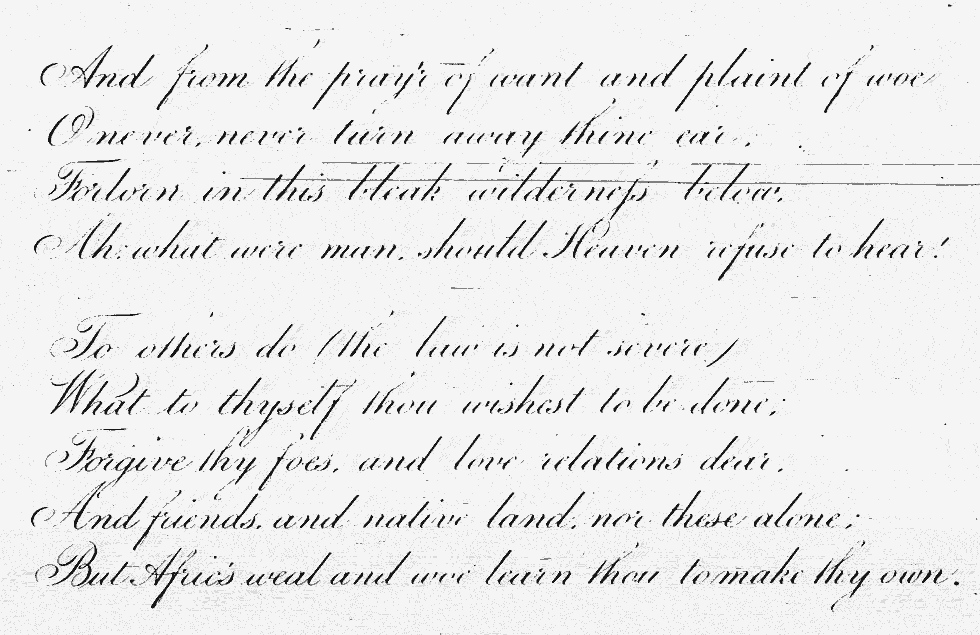 And from the pray'r of want and plaint of woe
O never, never turn away thine ear.
Forlorn in this bleak wilderneſs below,
Ah: what were man, should Heaven refuse to hear!
To others do (the law is not severe)
What to thyself thou wishest to be done;
Forgive thy foes, and love relations dear,
And friends, and native land, nor these alone;
But Afric's weal and woe learn thou to make thy own.